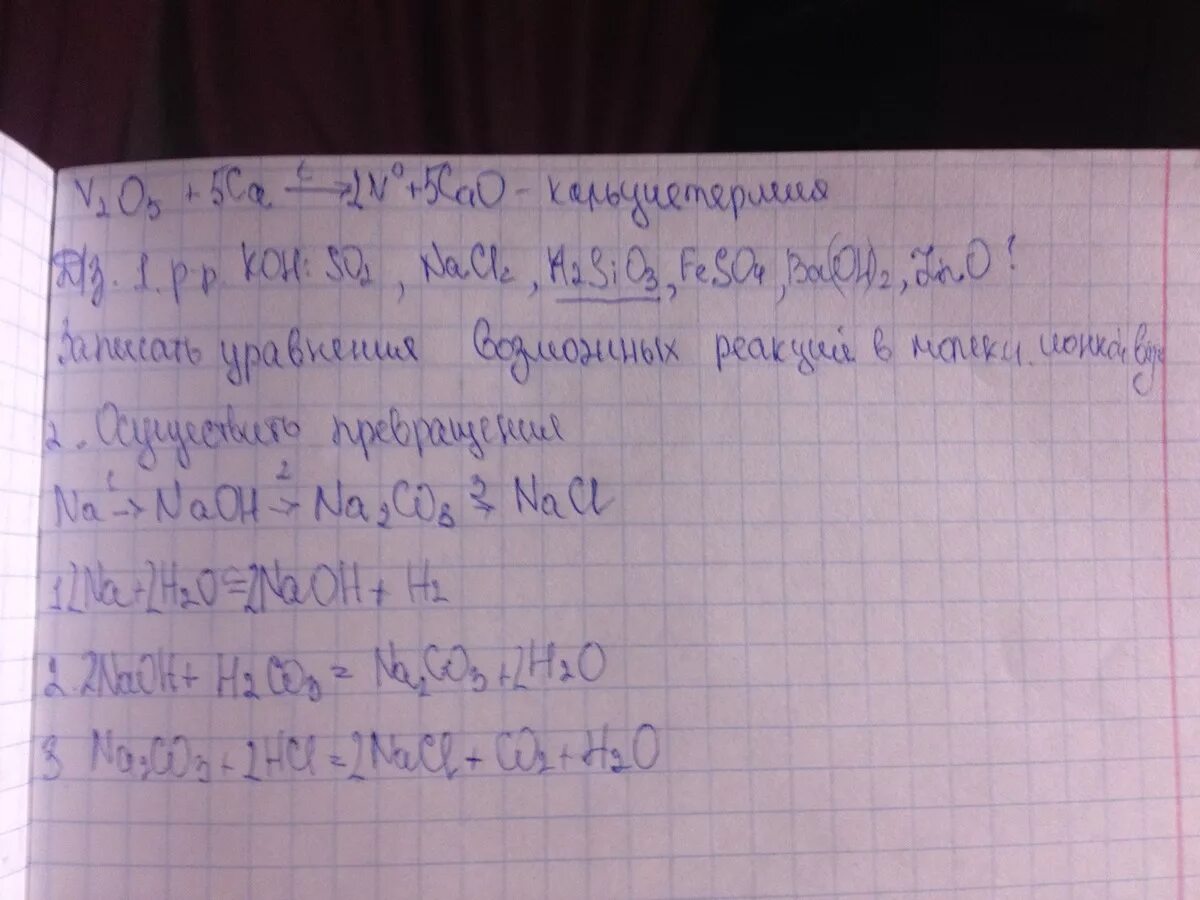 V₂O₅ + 5Ca —t→ 2V⁰ + 5CaO - кальциетермия
Д/з. 1. р-р KOH: SO₂, NaCl₂, H₂SiO₃, FeSO₄, Ba(OH)₂, ZnO!
Записать уравнения возможных реакций в молек. ионной
2. Осуществить превращения
Na 1→ NaOH 2→ Na₂CO₃ 3→ NaCl
1 2Na+2H₂O=2NaOH + H₂
2. 2NaOH + H₂CO₃ = Na₂CO₃ + 2H₂O
3 Na₂CO₃ + 2HCl = 2NaCl + CO₂ + H₂O